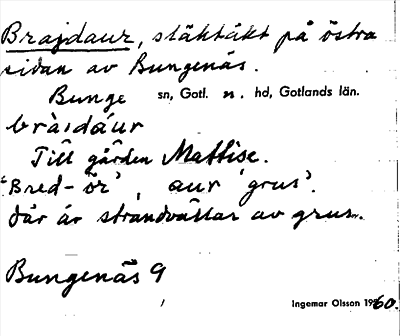 Brajdaur, släktäkt på östra
sidan av Bungenäs.
Bunge sn, Gotl. n. hd, Gotlands län.
bràidáur
Till gården Mattise.
"Bred-ör", aur 'grus'.
Där är strandvallar av grus.
Bungenäs 9
Ingemar Olsson 1960.